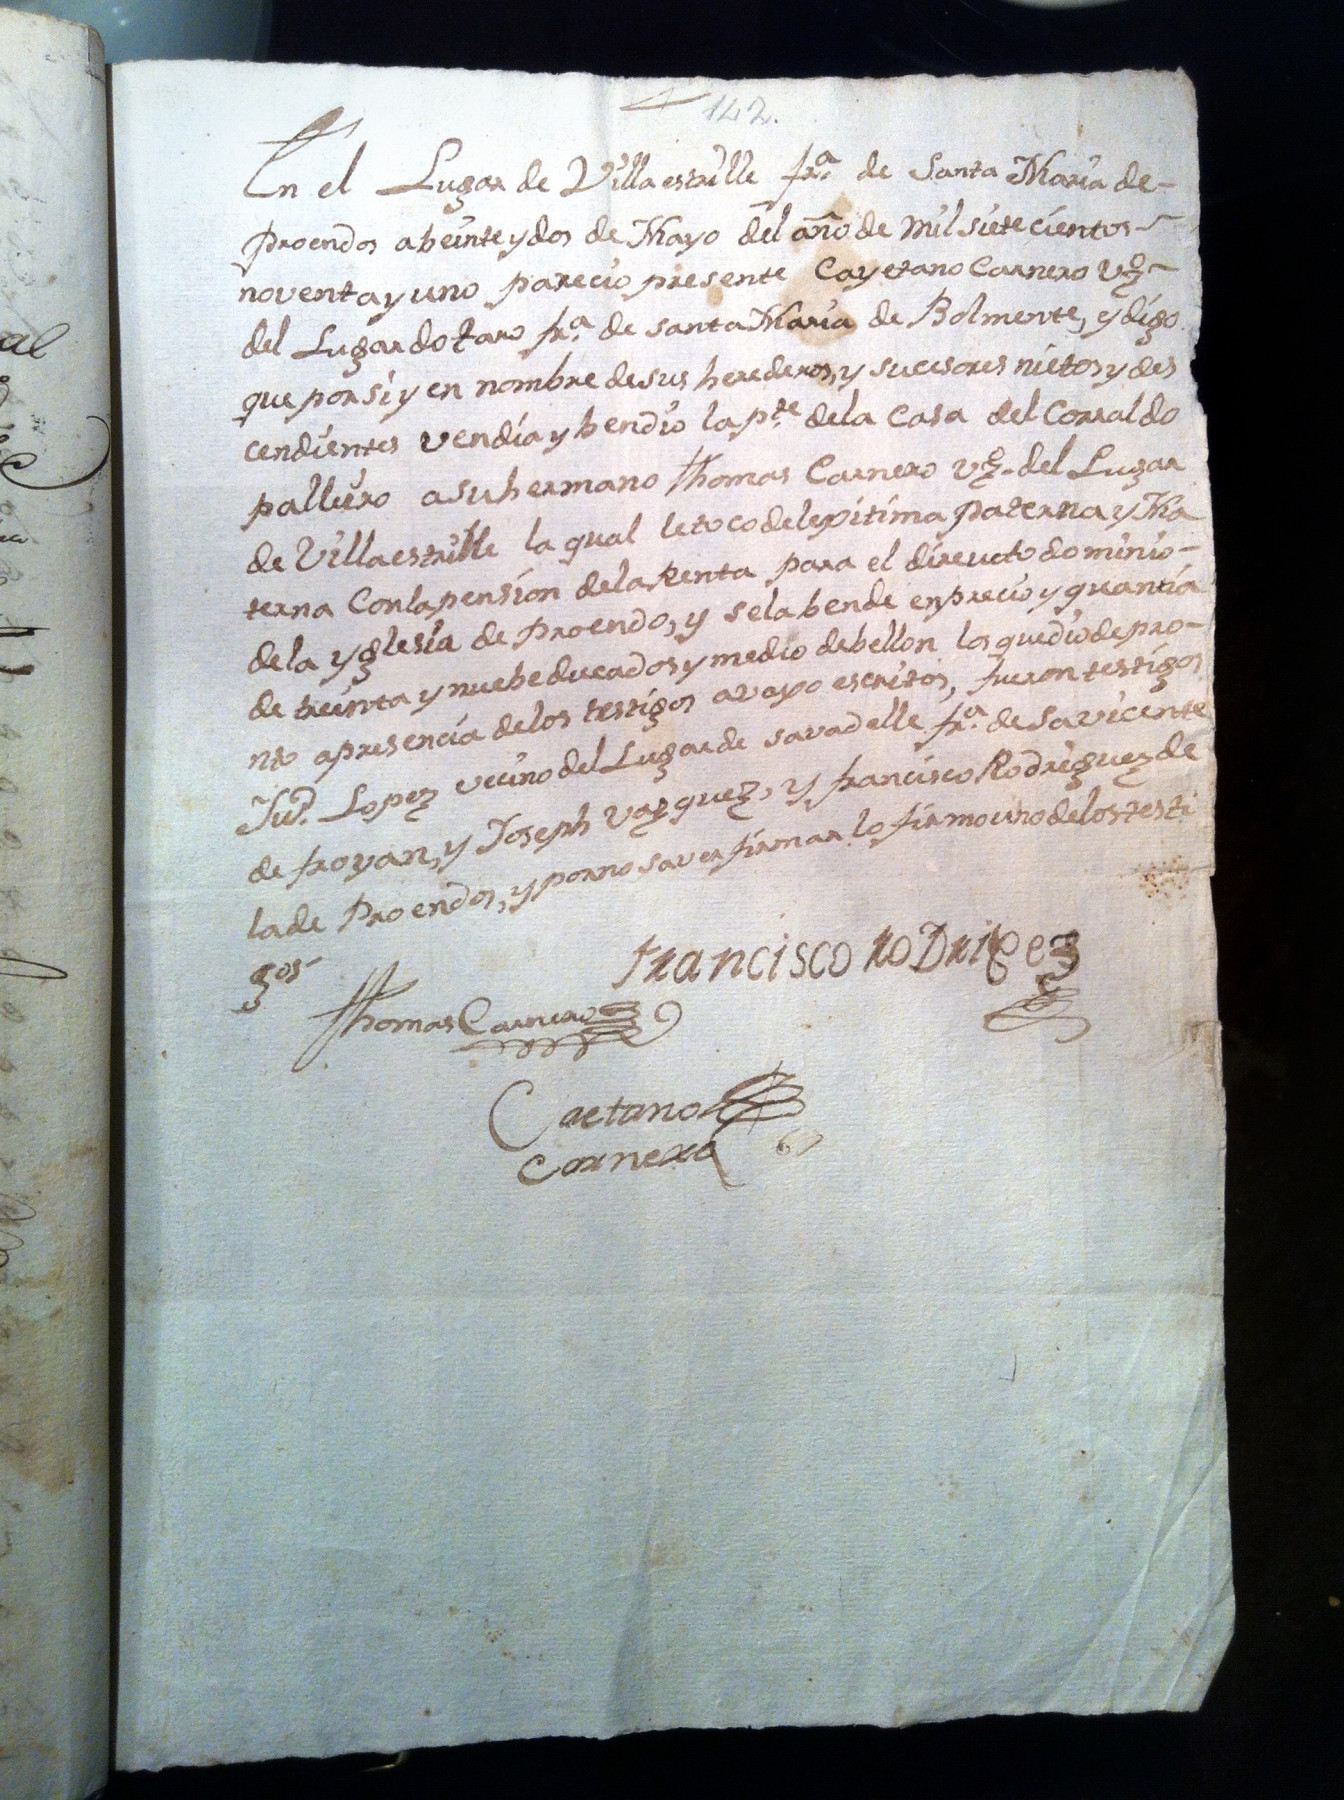 142.
En el Lugar de Villaestrille fra. de Santa Maria de-
Proendos abeinte y dos de Mayo del año de mil siete cientos-
noventa y uno parecio presente Cayetano Carnero vzo-
del Lugar do taro fra. de santa Maria de Bolmente, y digo
que por si y en nombre de sus herederos, y sucesores nietos y des
cendientes vendia y bendio la pte. de la Casa del Corral do
palleiro a su hermano thomas Carnero vzo. del Lugar
de Villaestrille la qual le toco de lexitima paterna y Ma
terna Con la pension de la Renta para el direuto dominio-
de la yglesia de Proendo, y se la bende en precio y quantia
de treinta y nuebe ducados y medio de bellon los que dio de pro-
nto a presencia de los testigos avaxo escritos, fueron testigos
Jun. Lopez vecino del Lugar de savadelle fra. de Sa vicente
de froyan, y Joseph vazquez, y francisco Rodriguez de
la de Proendos, y por no saver firmar lo firmo uno de los testi
gos-
francisco roDrigez
thomas Carnero
Caetano
Cornero
al